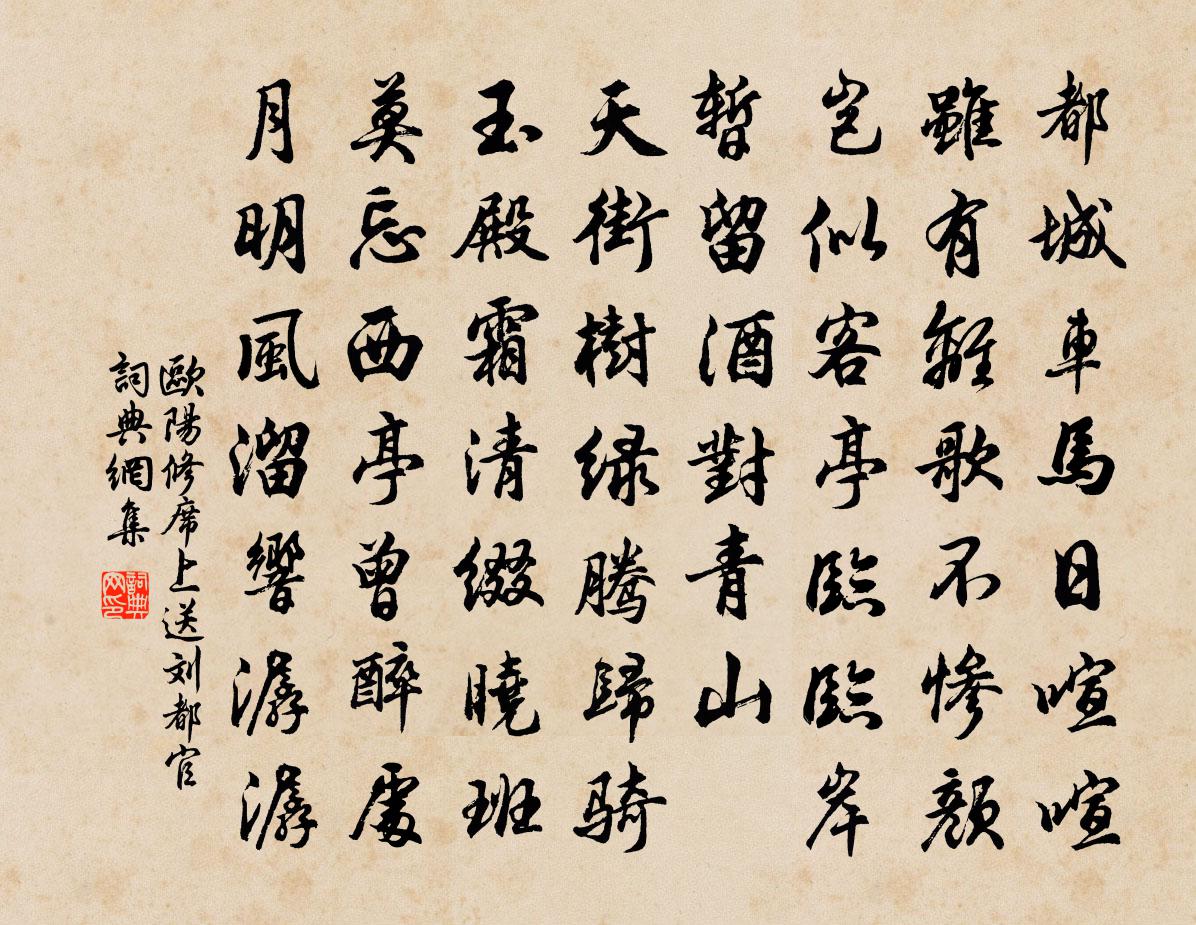 都城車馬日喧喧
雖有離歌不慘顏
豈似客亭臨臨岸
暫留酒對青山
天街樹綠騰歸騎
玉殿霜清綴曉班
莫忘西亭曾醉處
月明風溜響潺潺
歐陽修席上送刘都官
詞典網集
詞典网印